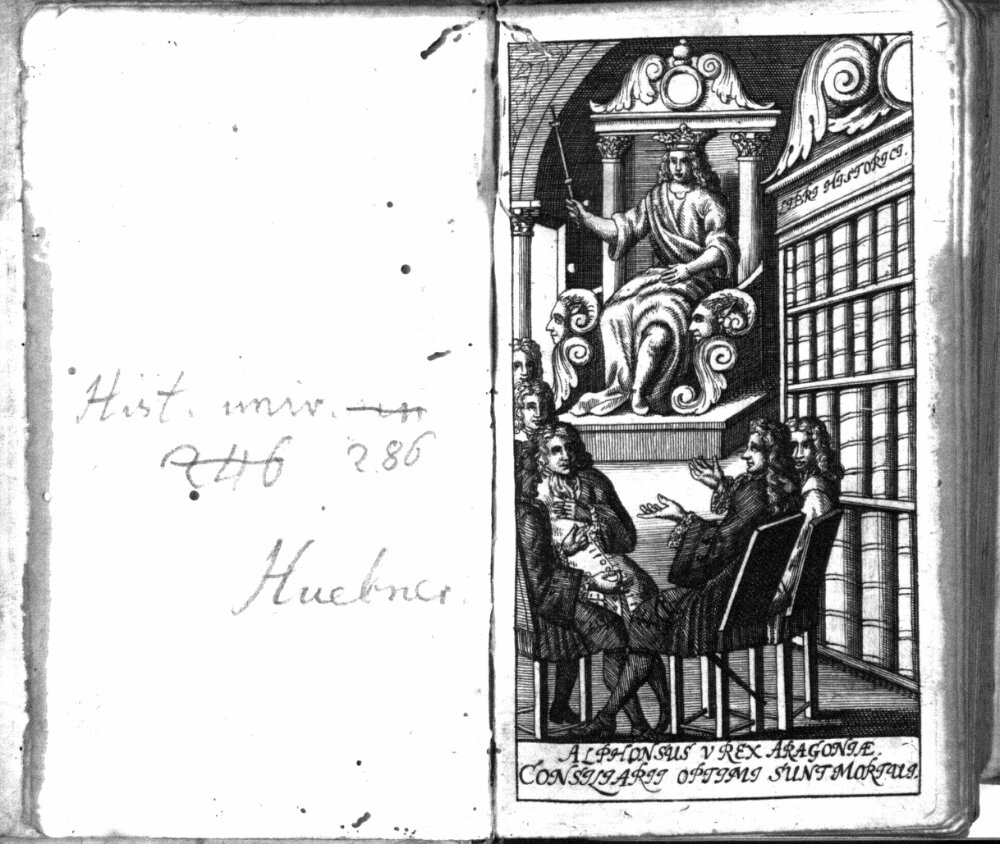 Hist. univ.
246 286
Huebner.
LIBRI HISTORICI.
ALPHONSUS V REX ARAGONIÆ.
CONSILIARII OPTIMI SUNT MORTUI.